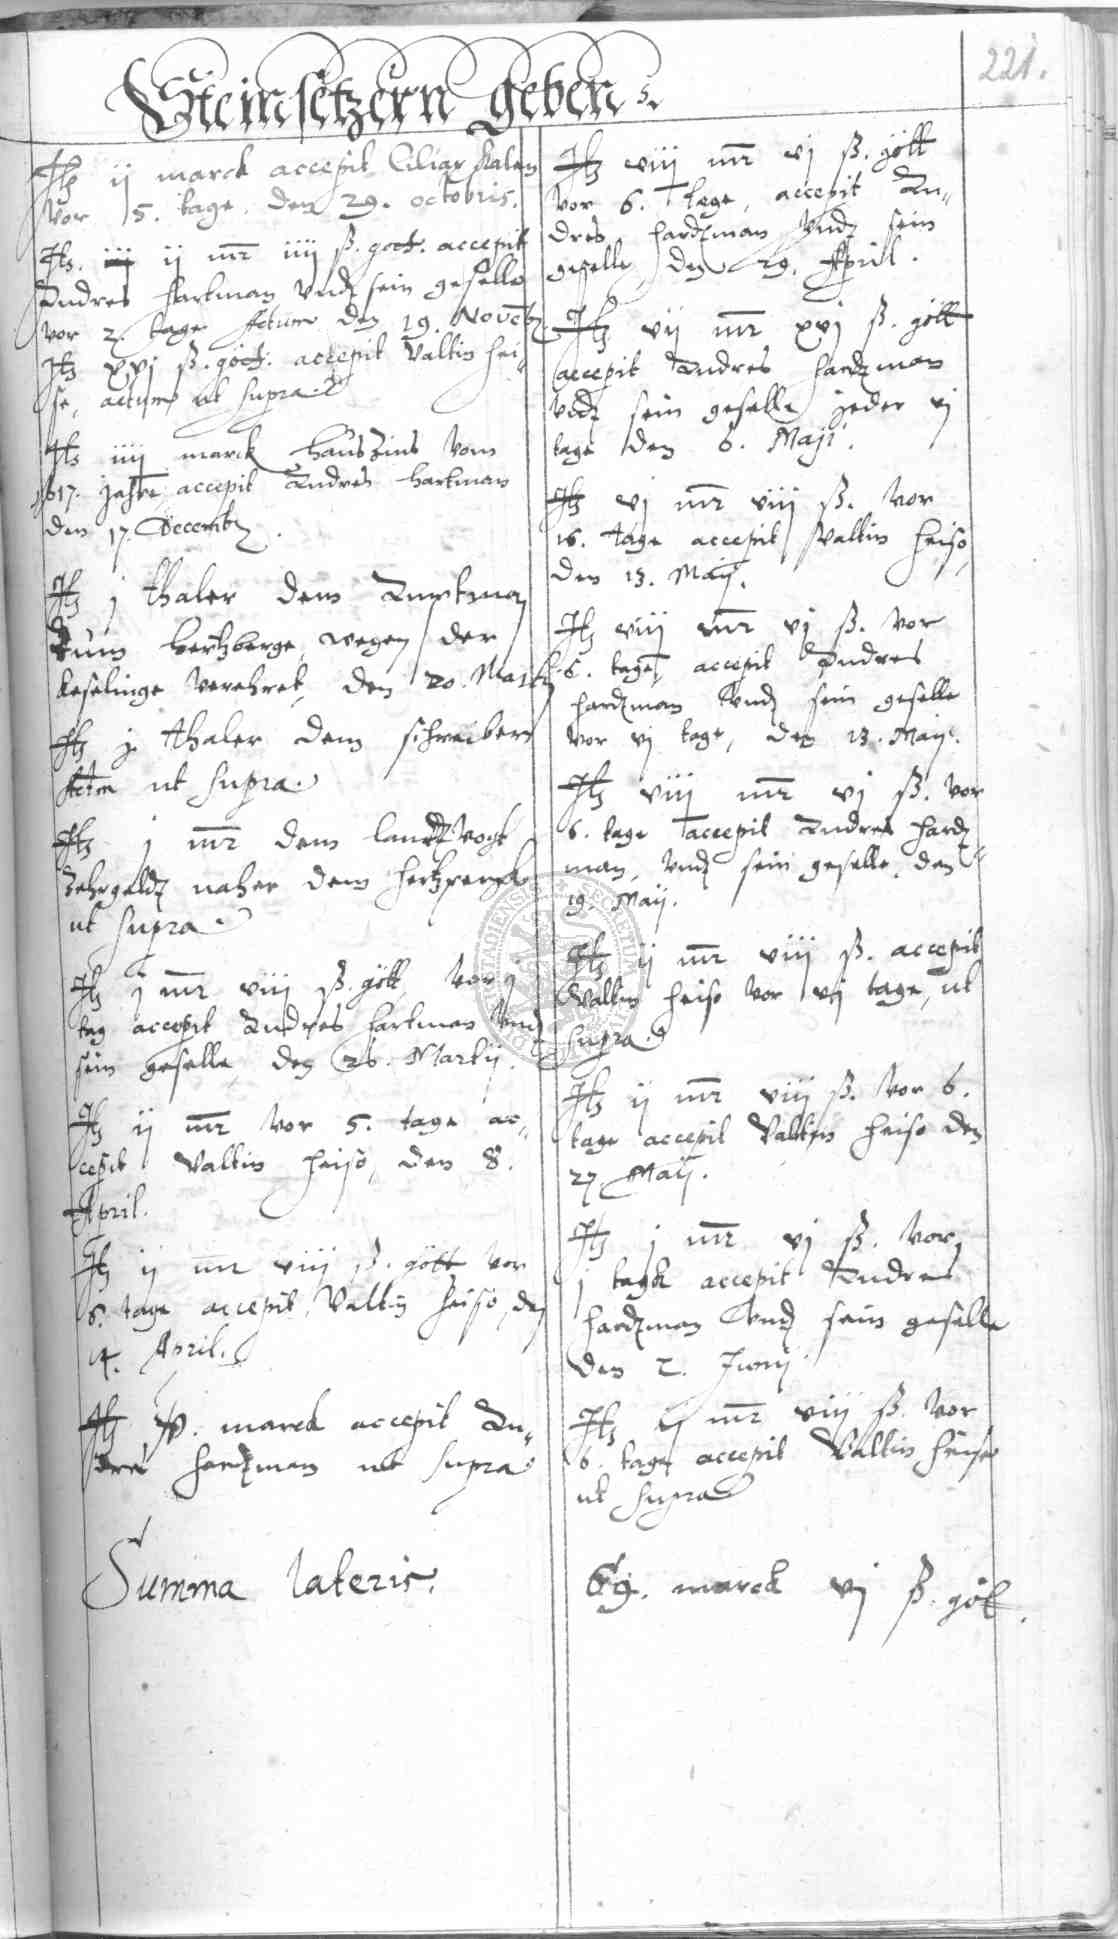 221.
Steinsetzern geben
Itz ij marck accepit Ciliax Kalen
vor 5. tage. den 29. octobris.
Itz. ij mr iiij ß. gott. accepit
Andres Hartman vnd sein geselle
vor 2. tage Actum den 19. Novemb
Itz xvj ß. gott. accepit Valtin Hei-
se, actum ut supra
Itz iiij marck hauszins vom
1617. jahre, accepit Andres Hartman
den 17. Decemb.
Itz j thaler dem Amptman
zum Hertzberge, wegen der
keselinge verehret, den 20. Martij
Itz j thaler dem schreibern
Actm ut supra.
Itz j mr dem landtvogt
zehrgeldt naher dem Hertzberge
ut supra
Itz j mr viij ß. gött, vor j
tag accepit Andres Hartman vnd
sein geselle den 26. Martij.
Itz ij mr vor 5. tage ac-
cepit Valtin Heise, den 8.
April.
Itz ij mr viij ß. gött vor
6. tage accepit Valtin Heise, den
14. April.
Itz marck accepit An-
dres Hardtman ut supra
Itz viij mr vj ß. gött
vor 6. tage, accepit An-
dres Hardtman vnd sein
geselle, den 29. April.
Itz vij mr xvj ß. gött
accepit Andres Hardtman
vnd sein geselle jeder vj
tage den 6. Maji.
Itz vj mr viij ß. vor
16. tage accepit Valtin Heise,
den 13. Maij.
Itz viij mr vj ß. vor
6. tage, accepit Andres
Hardtman vnd sein geselle
vor vj tage, den 13. Maij.
Itz viij mr vj ß. vor
6. tage accepit Andres Hardt-
man, vnd sein geselle, den
19. Maij.
Itz ij mr viij ß. accepit
Valtin Heise vor vj tage, ut
supra
Itz ij mr viij ß. vor 6.
tage accepit Valtin Heise den
27 Maij.
Itz j mr vj ß. vor
j tagk accepit Andres
Hardtman vnd sein geselle
den 2. Junij
Itz ij mr viij ß. vor
6. tage accepit Valtin Heise
ut supra
Summa lateris. 69. marck vj ß. göt.